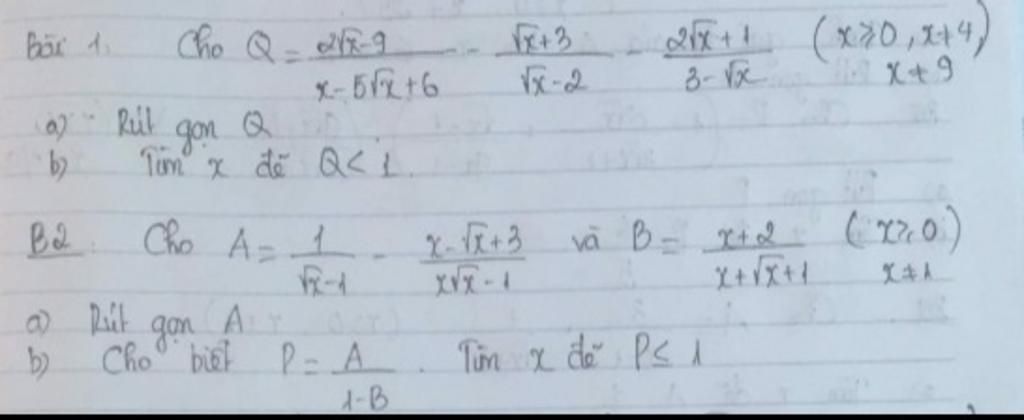 Bài 1. Cho Q = (2√x-9)/(x-5√x+6) - (√x+3)/(√x-2) - (2√x+1)/(3-√x) (x≥0, x≠4, x≠9)
a) Rút gọn Q
b) Tìm x để Q < 1.
B2 Cho A = 1/(√x-1) - (x-√x+3)/(x√x-1) và B = (x+2)/(x+√x+1) (x≥0, x≠1)
a) Rút gọn A
b) Cho biết P = A/(1-B). Tìm x để P ≤ 1